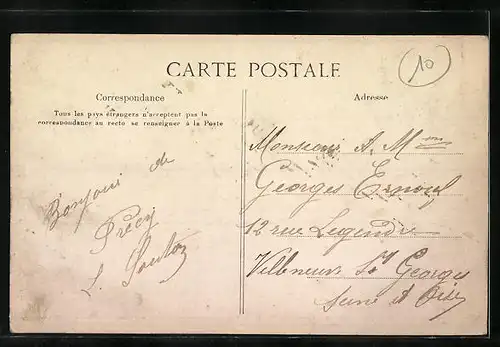 CARTE POSTALE
10
Correspondance
Tous les pays étrangers n'acceptent pas la
correspondance au recto se renseigner à la Poste
Bonjour de
Précy
L.
Adresse
Monsieur A. Mme
Georges Ernouf
12 rue Legendre
Villeneuve St Georges
Seine et Oise